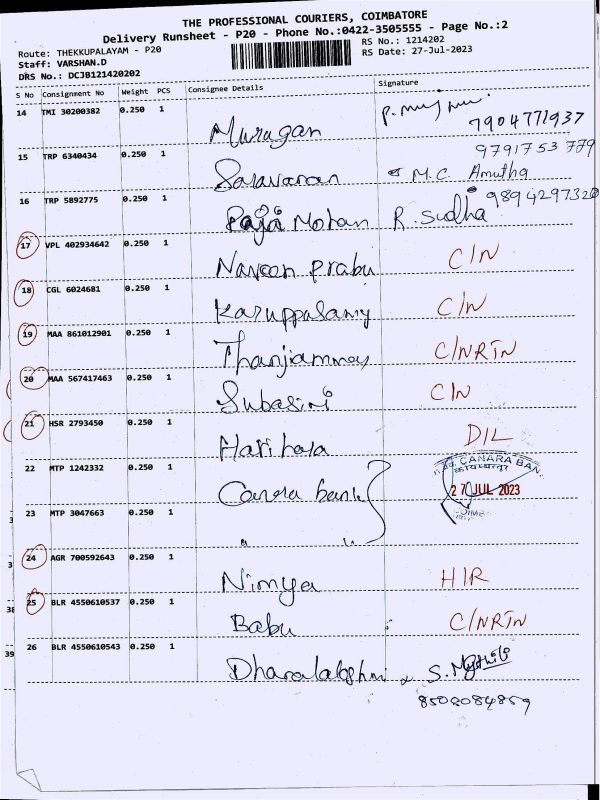 THE PROFESSIONAL COURIERS, COIMBATORE
Delivery Runsheet - P20 - Phone No.:0422-3505555 - Page No.:2
Route: THEKKUPALAYAM - P20
RS No.: 1214202
Staff: VARSHAN.D
RS Date: 27-Jul-2023
DRS No.: DCJB121420202
S No Consignment No Weight PCS Consignee Details Signature
14 TMI 30200382 0.250 1
Murugan 7904771937
15 TRP 6340434 0.250 1 9791753779
Saravanan M.C. Amutha
16 TRP 5892775 0.250 1 9894297320
Raja Mohan R. Sudha
17 VPL 402934642 0.250 1
Naveen Prabu C/N
18 CGL 6024681 0.250 1
Karuppasamy C/N
19 MAA 861012901 0.250 1
Thanjiammal C/NRTN
20 MAA 567417463 0.250 1
Subasini C/N
21 HSR 2793450 0.250 1
Hari hara D/L
22 MTP 1242332 0.250 1 CANARA BAN
Canara bank 27 JUL 2023
23 MTP 3047663 0.250 1
" "
24 AGR 700592643 0.250 1
Nimya H/R
25 BLR 4550610537 0.250 1
Babu C/NRTN
26 BLR 4550610543 0.250 1
S. Mythili
8502084859
39